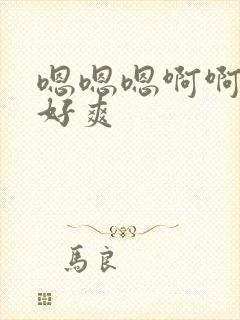 嗯嗯嗯啊啊
好爽
馬良